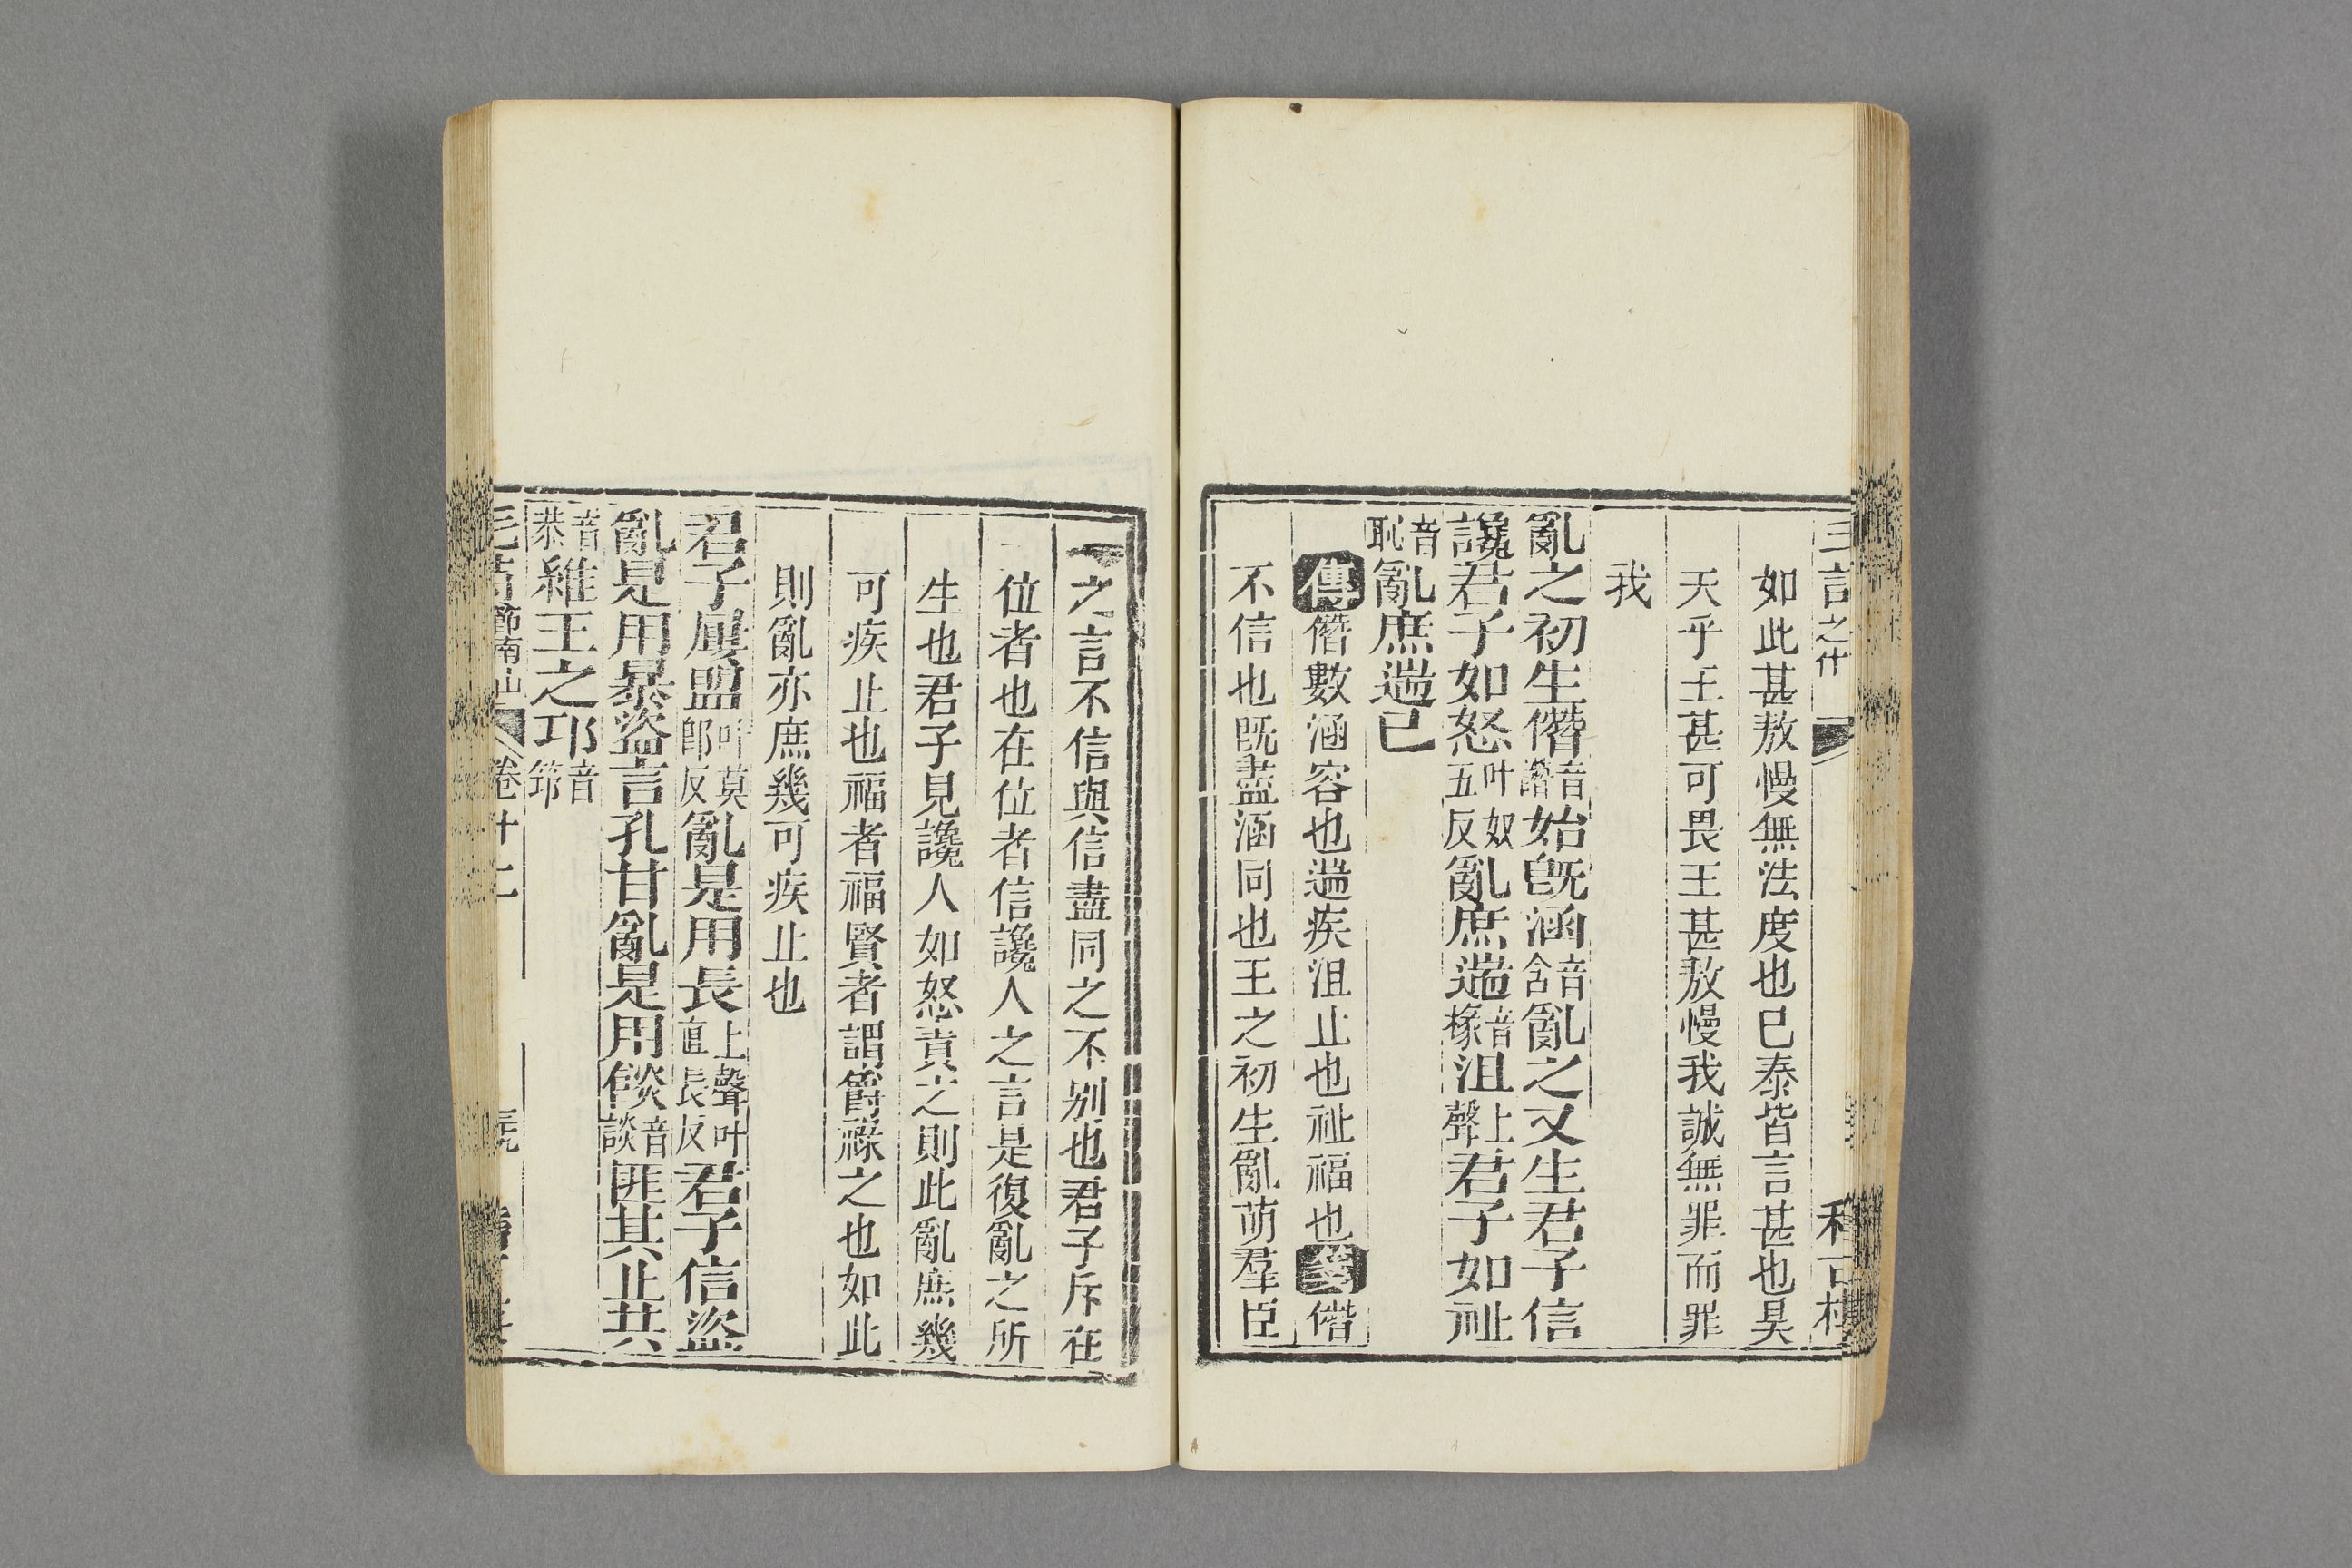 言之什
如此甚敖慢無法度也已泰皆言甚也昊
天乎王甚可畏王甚敖慢我誠無罪而罪
我
亂之初生僭音譖始旣涵音含亂之又生君子信
讒君子如怒叶奴五反亂庶遄音椽沮上聲君子如祉
音恥亂庶遄已
傳僭數涵容也遄疾沮止也祉福也箋僭
不信也旣盡涵同也王之初生亂萌羣臣
之言不信與信盡同之不别也君子斥在
位者也在位者信讒人之言是復亂之所
生也君子見讒人如怒責之則此亂庶幾
可疾止也福者福賢者謂爵祿之也如此
則亂亦庶幾可疾止也
君子屢盟叶莫郎反亂是用長上聲叶直良反君子信盜
亂是用暴盜言孔甘亂是用餤音談匪其止共
音恭維王之邛音筇
節南山 卷十二